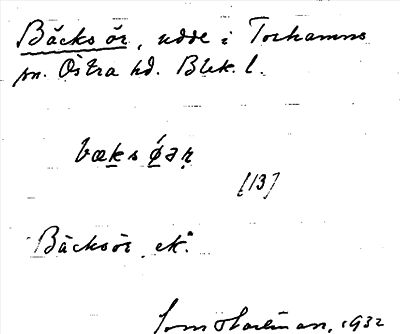 Bäcks ör, udde i Torhamns
sn. Östra hd. Blek. l.
bæks ǿər
[13]
Bäcksör ek.
1932